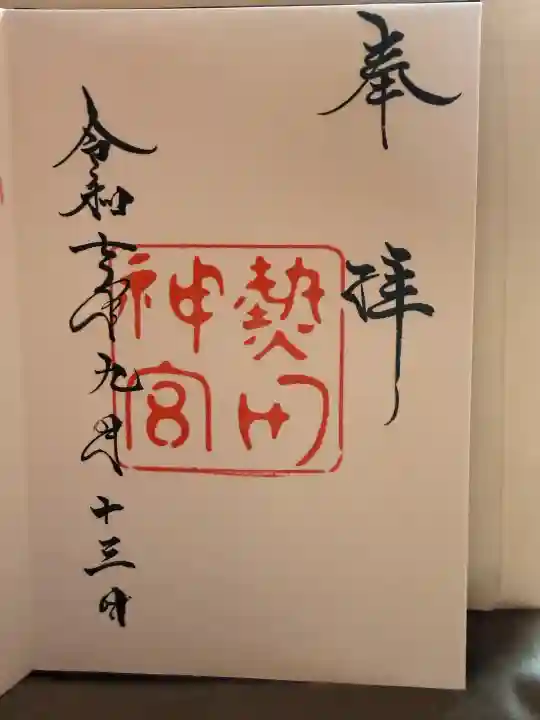 奉拝
熱田
神宮
令和七年九月十三日